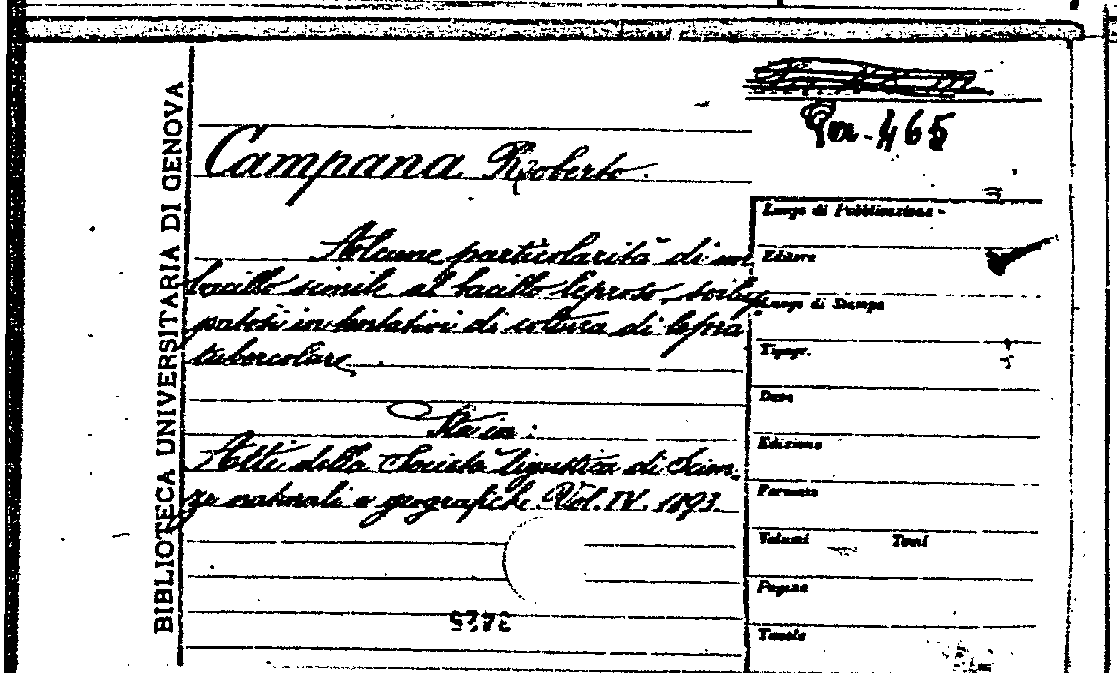 BIBLIOTECA UNIVERSITARIA DI GENOVA
Per. 465
Campana Roberto.
Alcune particolarità di un
bacillo simile al bacillo leproso, svilup
patosi in tentativi di coltura di lepra
tubercolare
Sta in:
Atti della Società Ligustica di Scien-
ze naturali e geografiche. Vol. IV. 1893.
Luogo di Pubblicazione
Editore
Luogo di Stampa
Tipogr.
Data
Edizione
Formato
Volumi Tomi
Pagine
Tavole